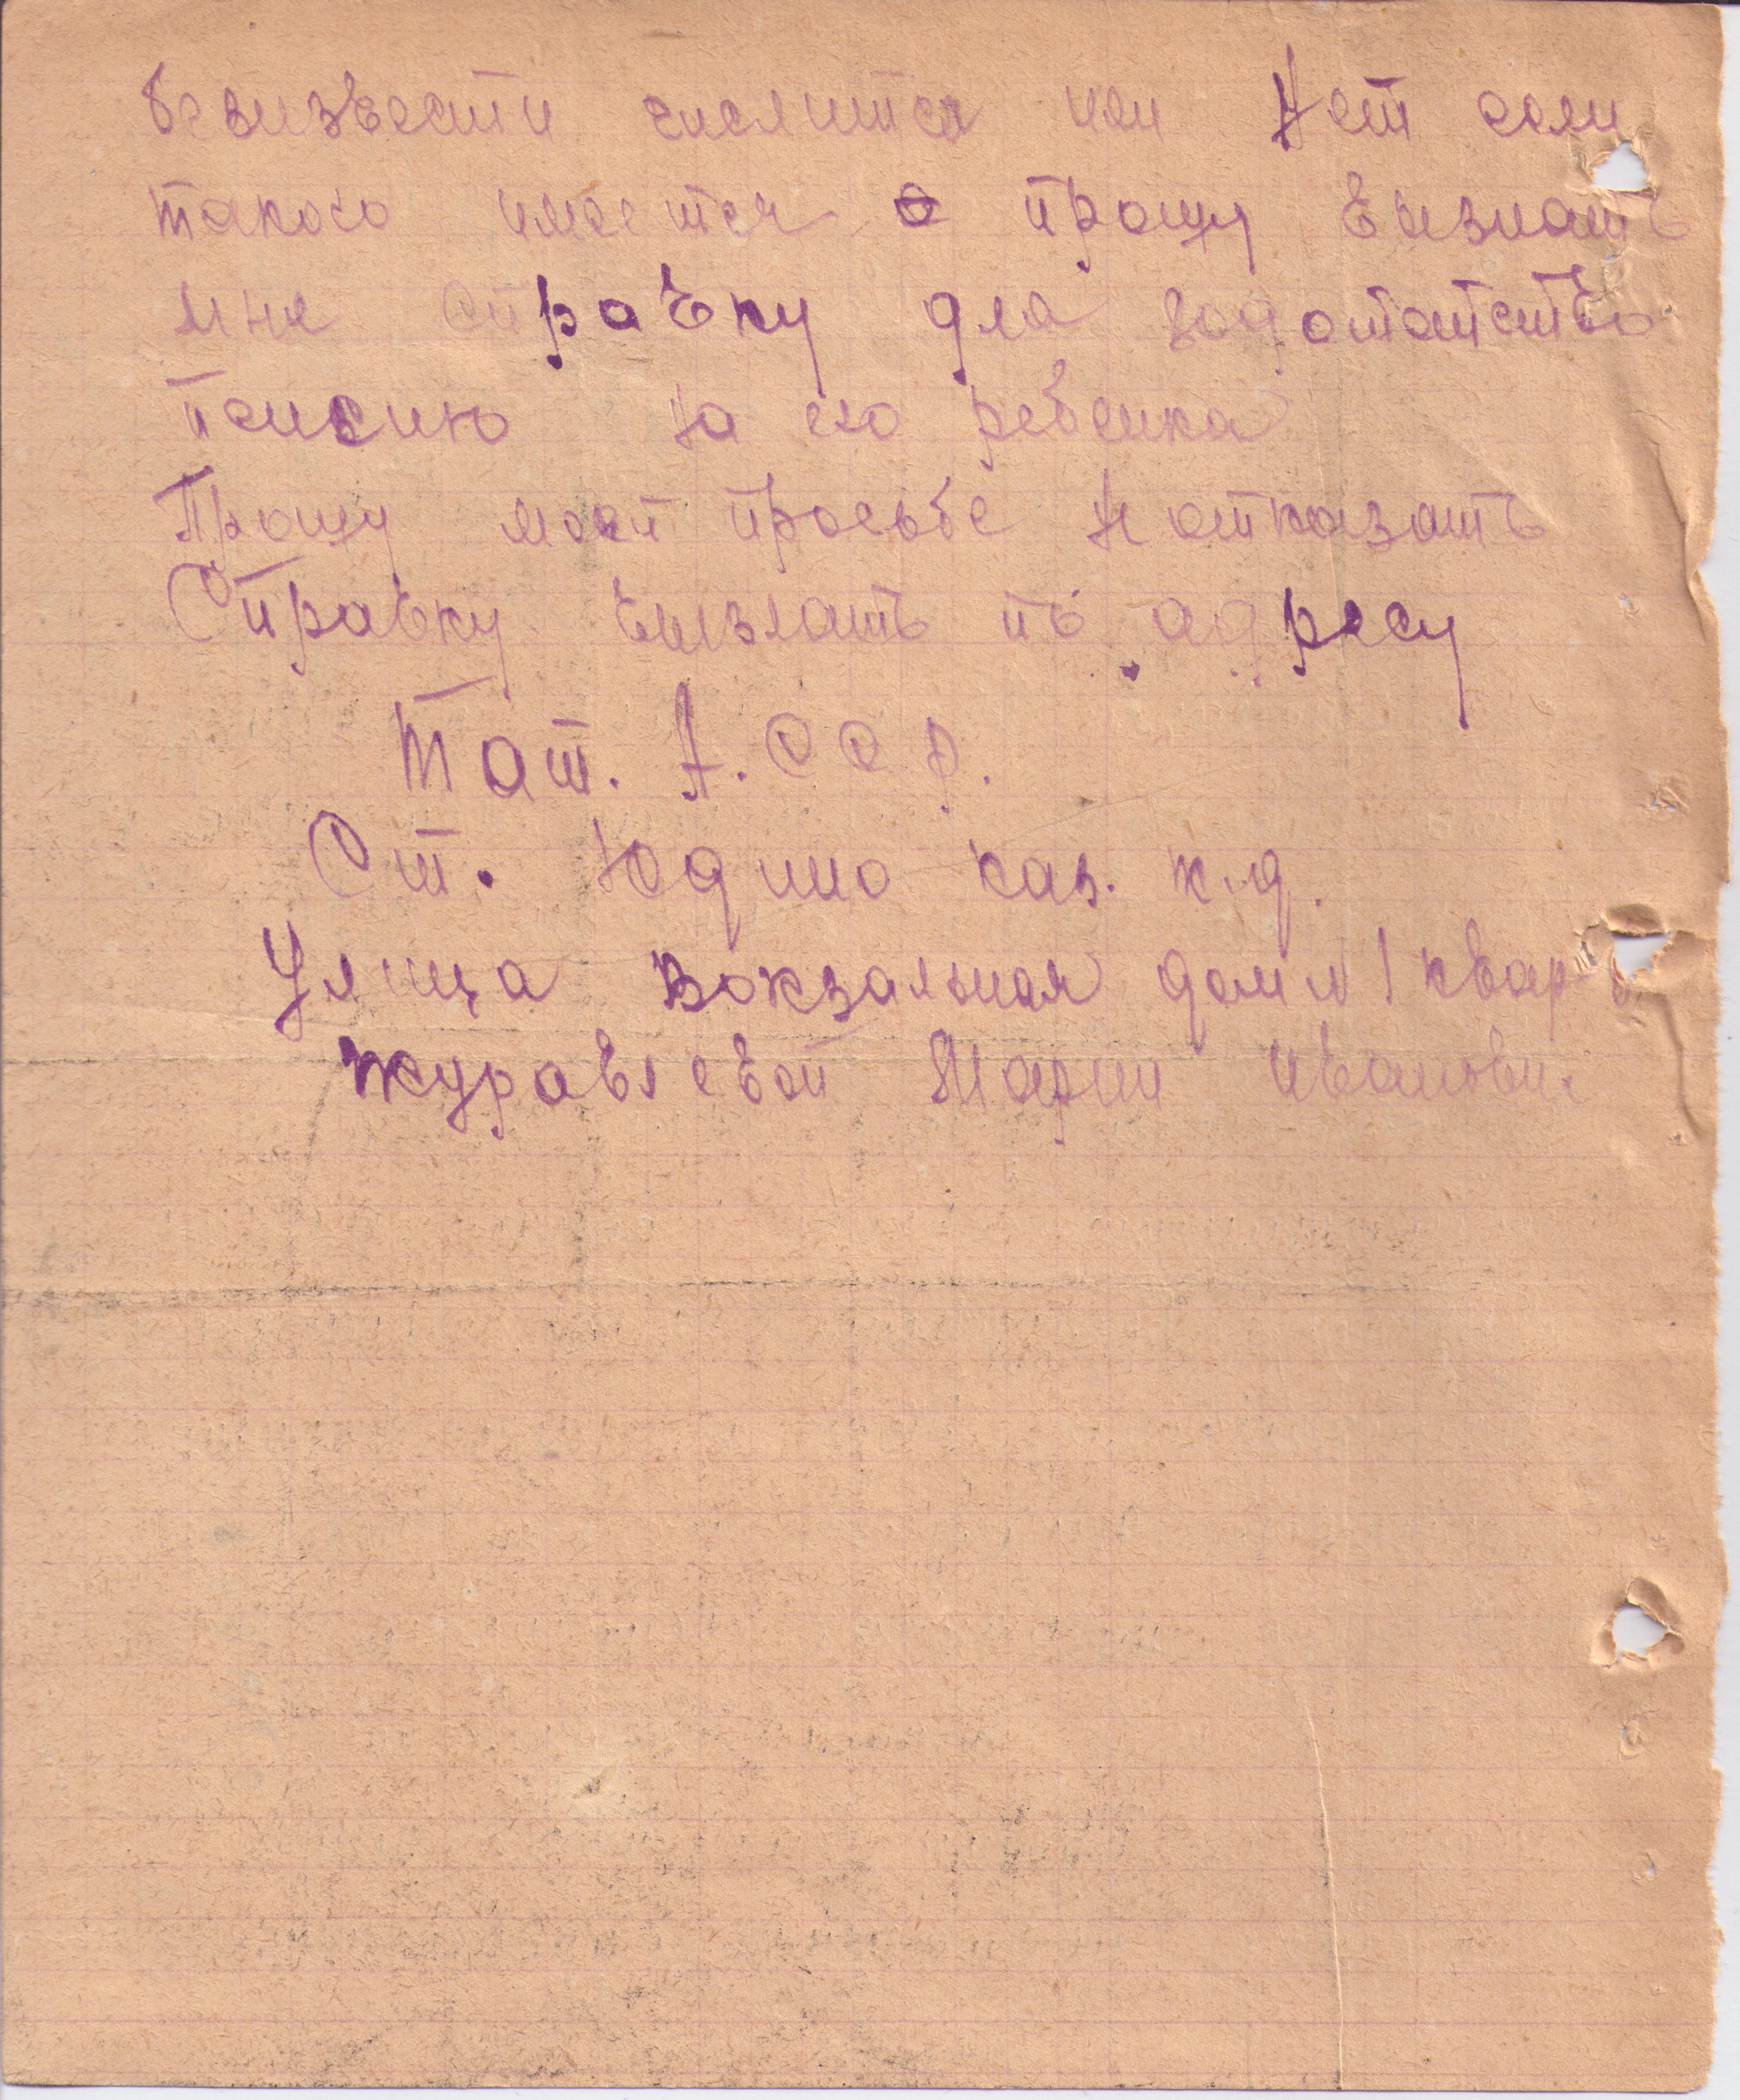 безизвести числится или Нет если
такого имеется прошу вызлать
мне справку для ходотатство
пенсию на его ребенка
Прошу моей просьбе не отказать
Справку вызлать по адресу
Тат. А.ССР.
Ст. Юдино каз. ж.д.
Улица Вокзальная дом № 1 квар
Журавлевой Марии Ивановне